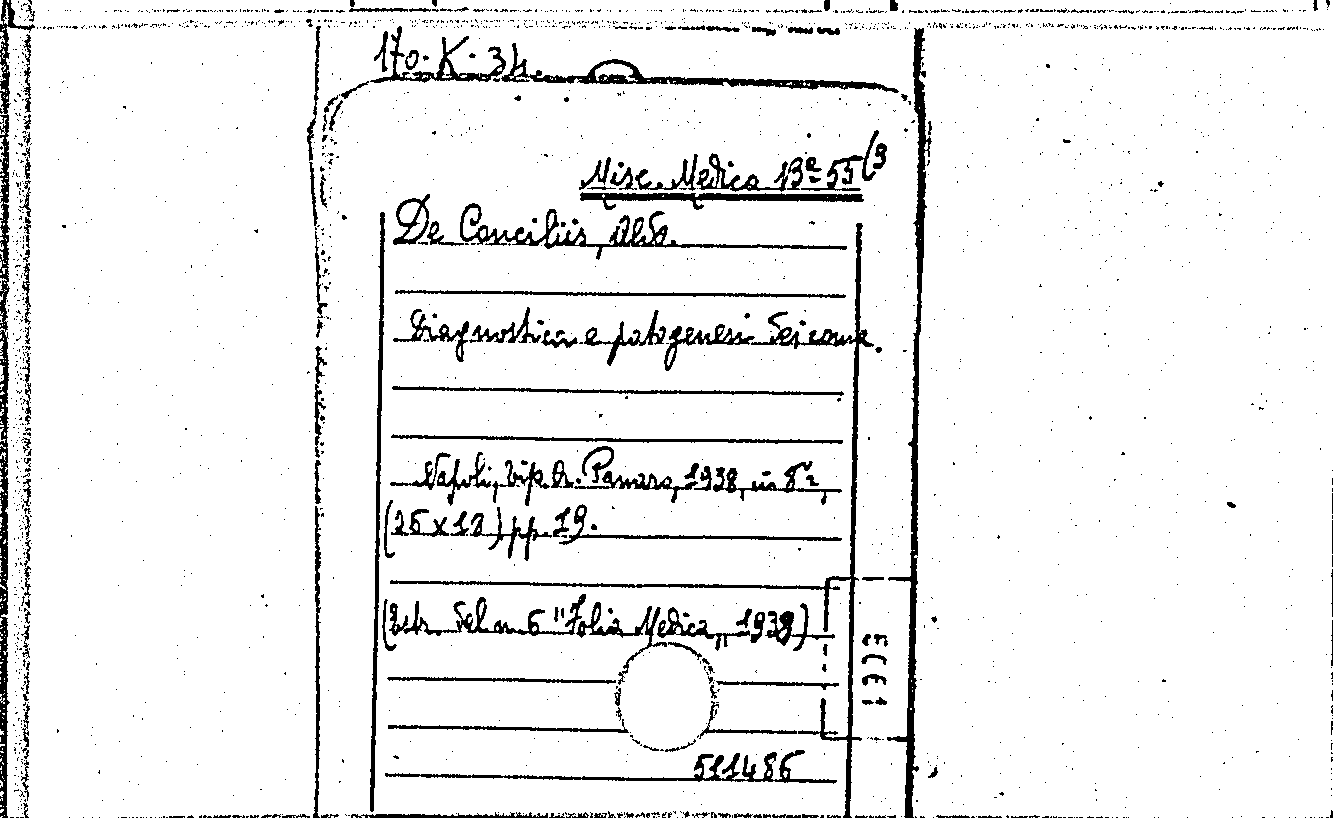 170. K. 34.
Misc. Medica 13ª 55 (9
De Conciliis, Aldo.
Diagnostica e patogenesi dei coma.
Napoli, Tip. Dr. Panara, 1938, in 8°,
(25 x 18) pp. 19.
(Estr. del n. 6 "Folia Medica,, 1938)
511486